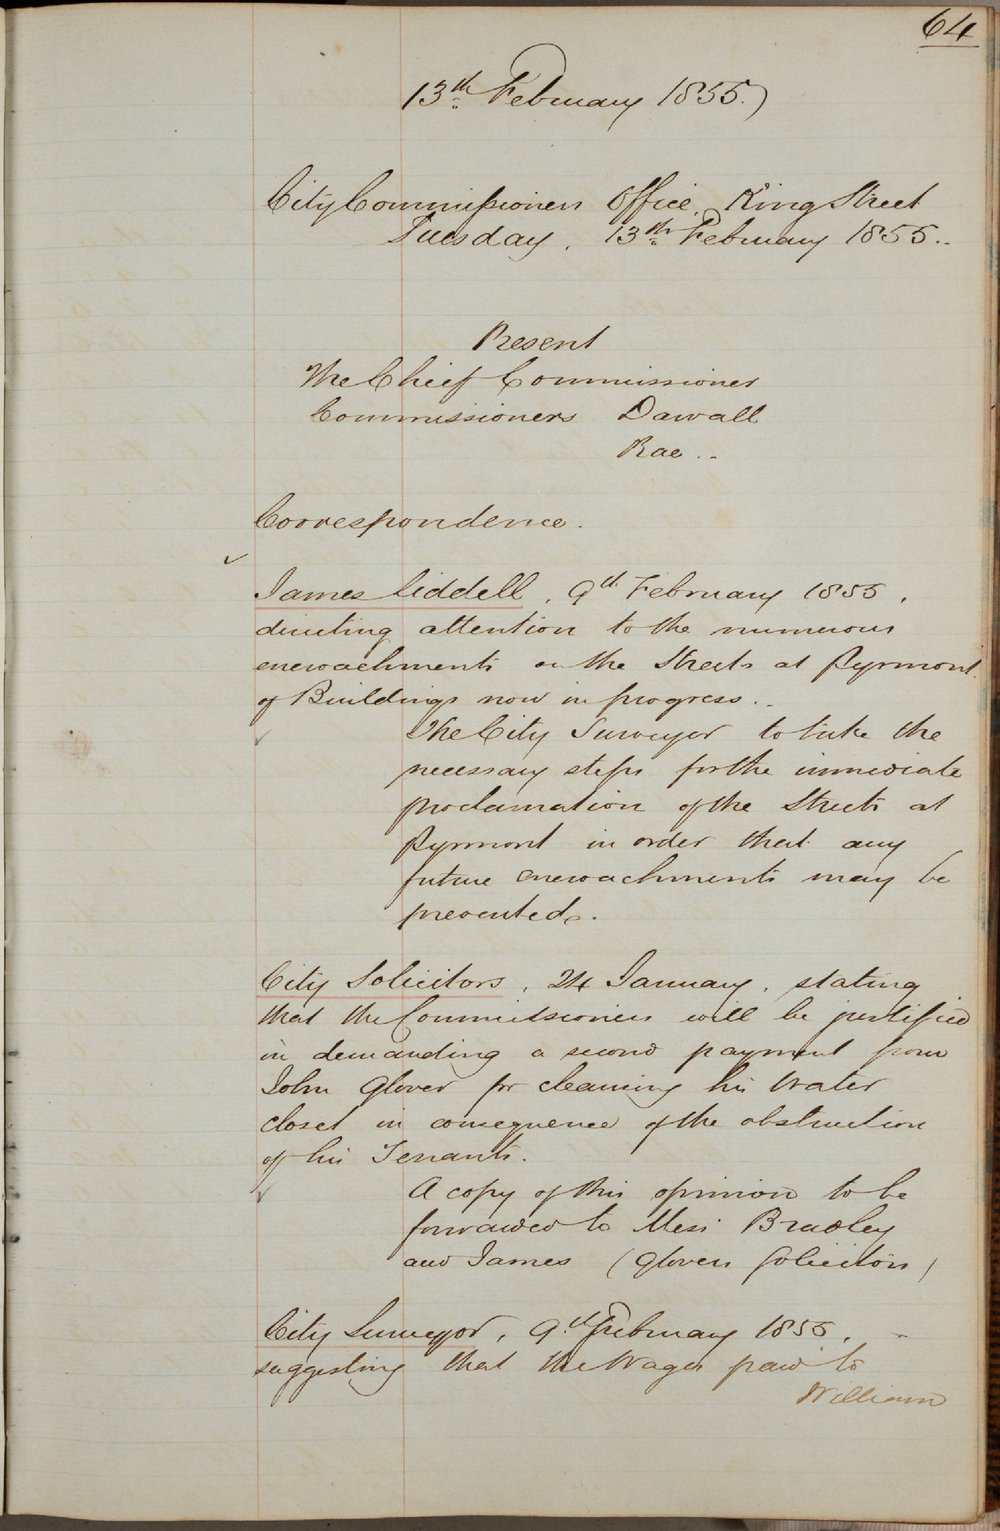 64
13th February 1855.)
City Commissioners Office, King Street
Tuesday, 13th February 1855..
Present
The Chief Commissioner
Commissioners Darvall
Rae ..
Correspondence.
James Liddell, 9th February 1855,
directing attention to the numerous
encroachments on the Streets at Pyrmont
of Buildings now in progress..
The City Surveyor to take the
necessary steps for the immediate
proclamation of the Streets at
Pyrmont in order that any
future encroachments may be
prevented.
City Solicitors, 24 January, stating
that the Commissioners will be justified
in demanding a second payment from
John Glover for cleaning his Water
closet in consequence of the obstruction
of his Tenants.
A copy of this opinion to be
forwarded to Mess: Bradley
and James (Glovers Solicitors)
City Surveyor, 9th February 1855,
suggesting that the Wages paid to
William